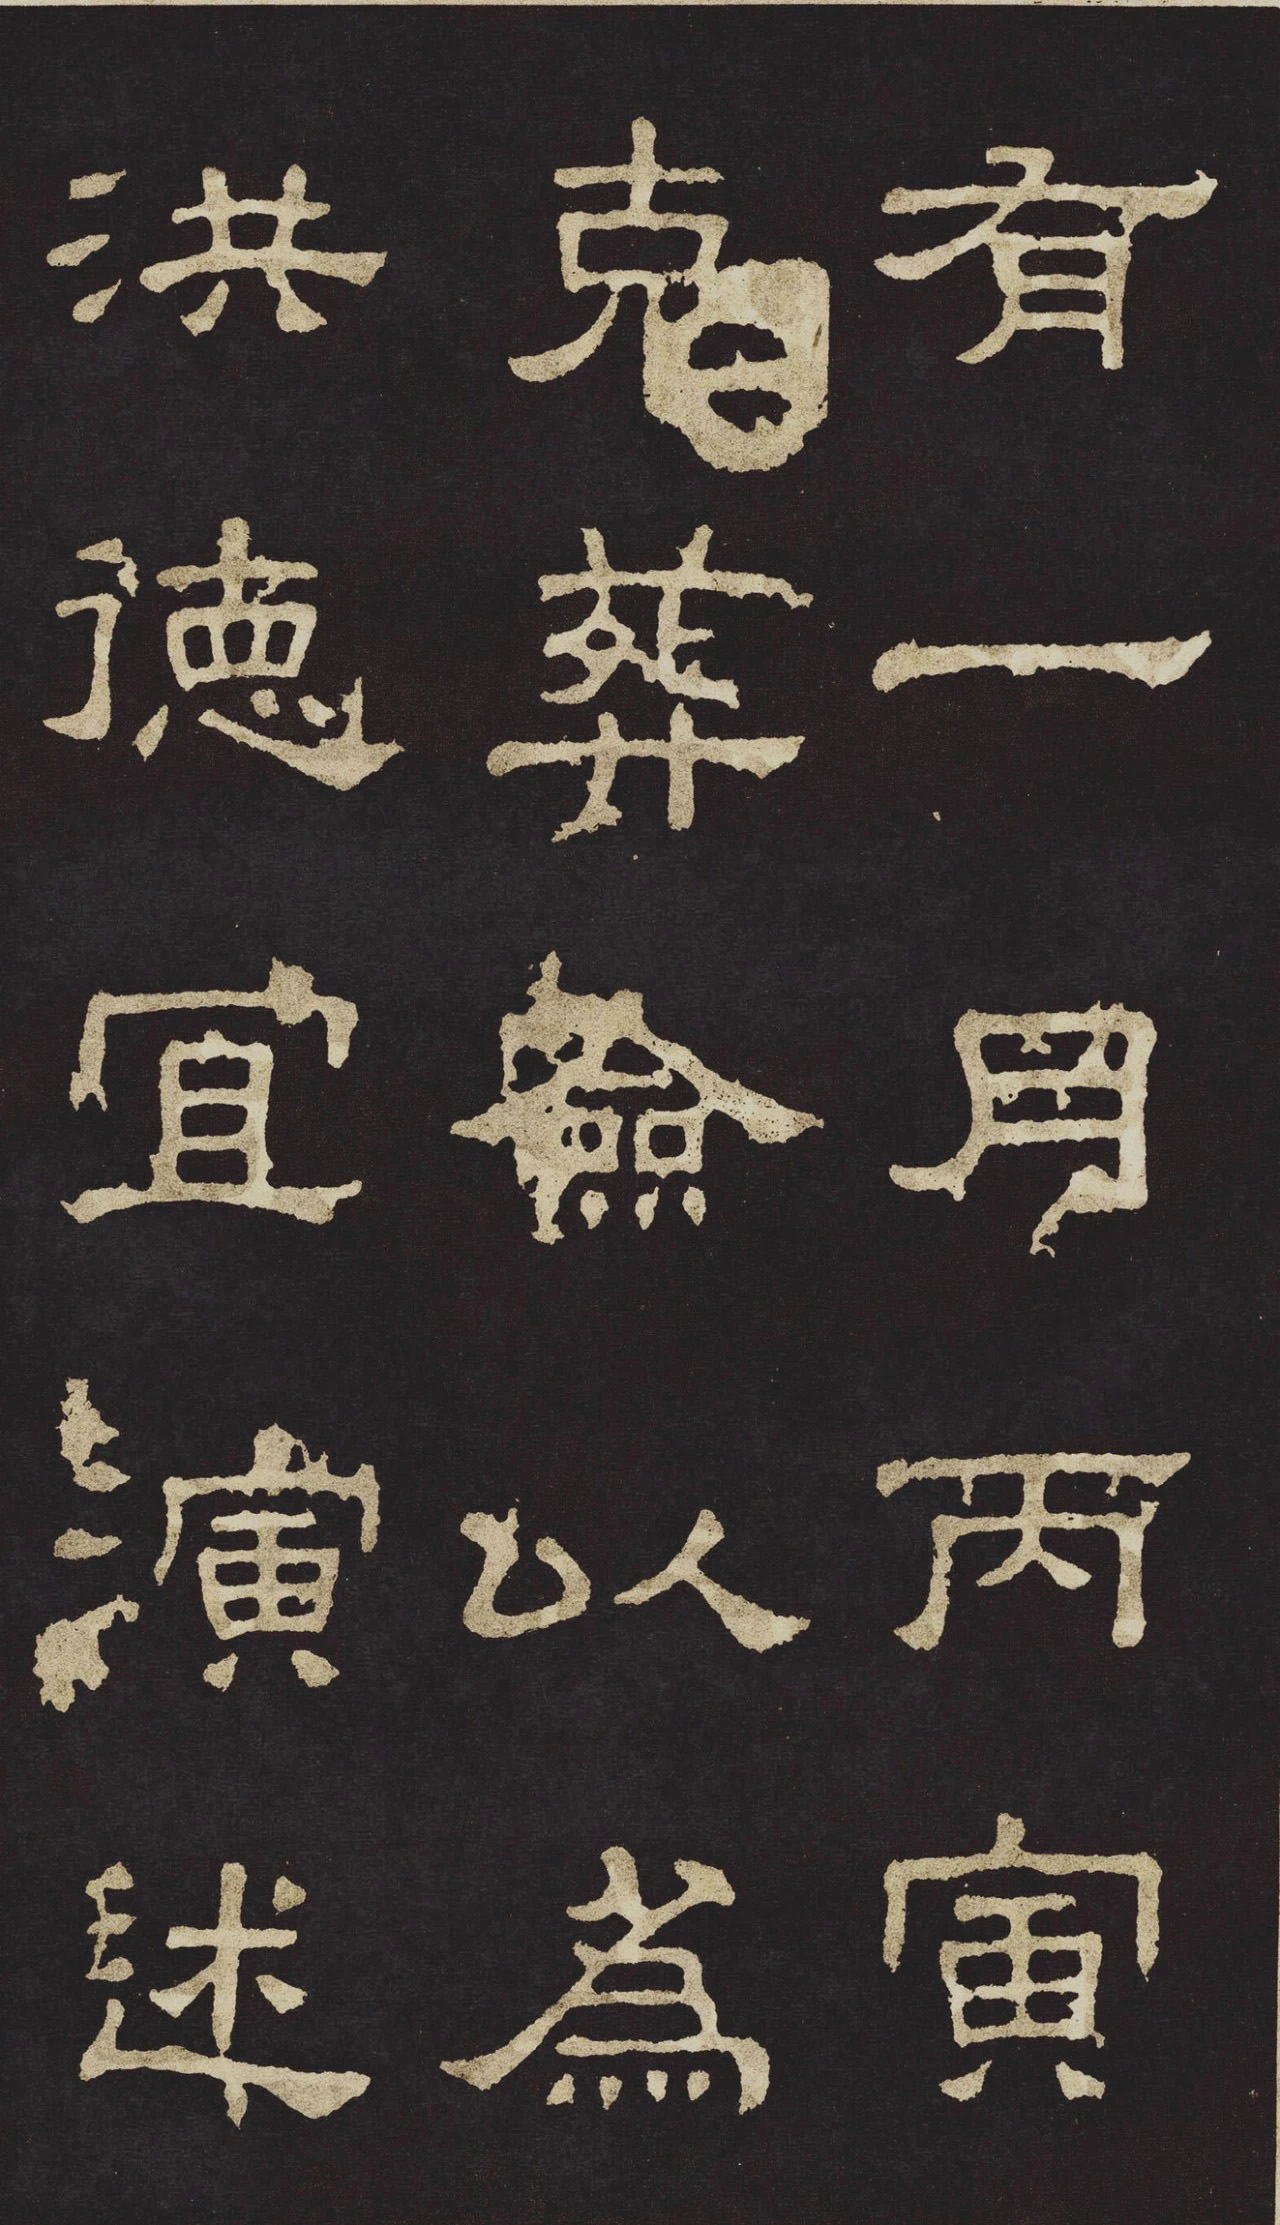 有一月丙寅
克葬僉以為
洪德宜演述